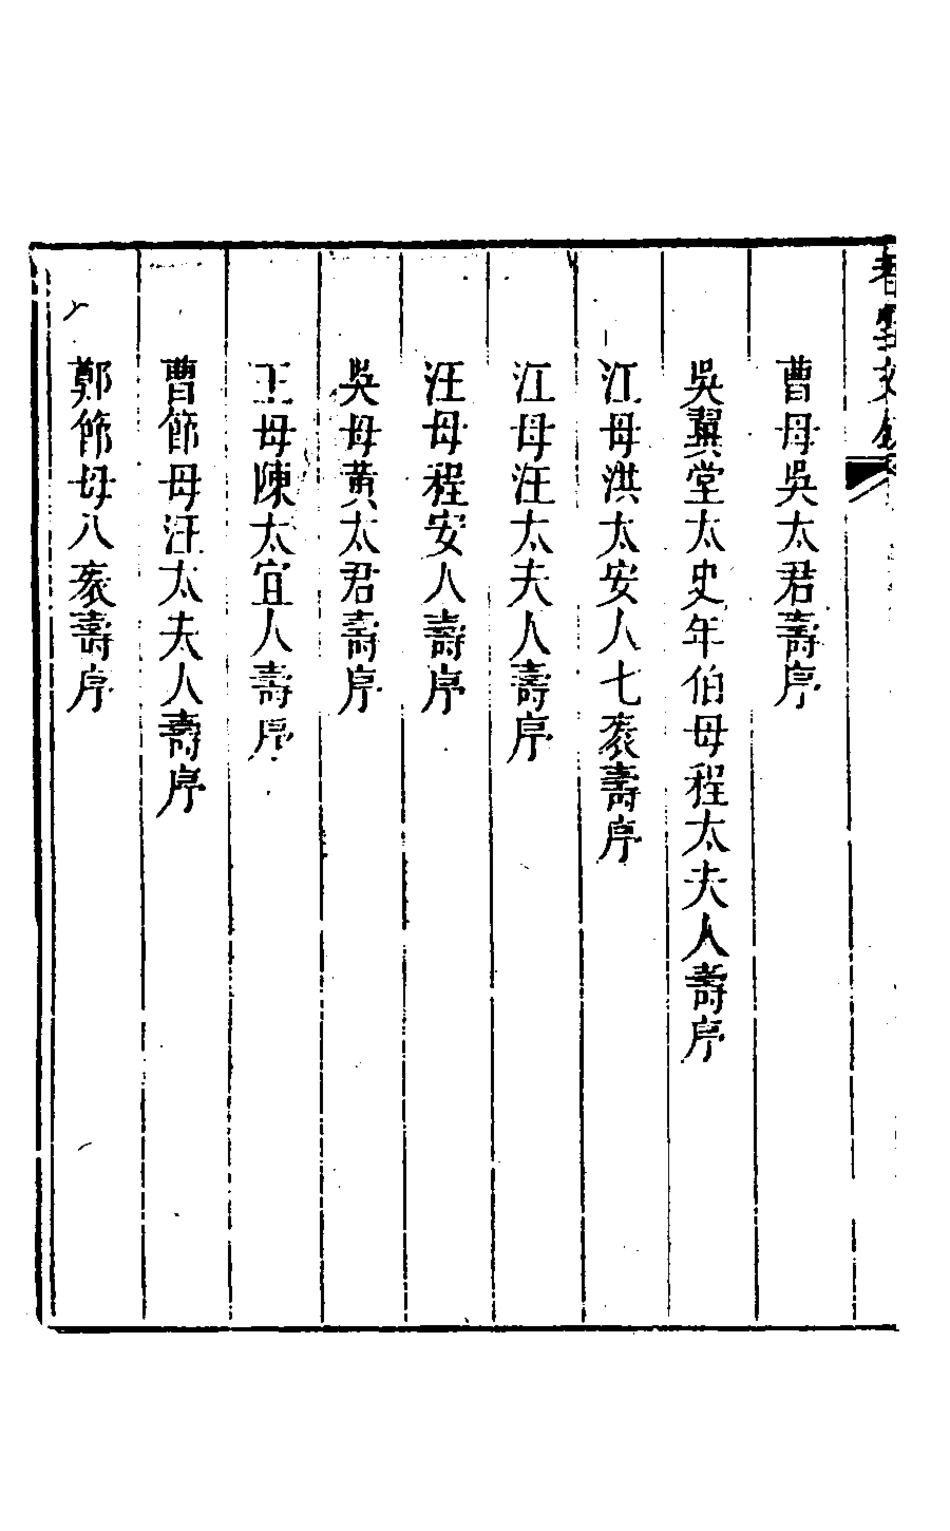 曹母吳太君壽序
吳翼堂太史年伯母程太夫人壽序
江母洪太安人七袠壽序
江母汪太夫人壽序
汪母程安人壽序
吳母黃太君壽序
王母陳太宜人壽序
曹節母汪太夫人壽序
鄭節母八袠壽序